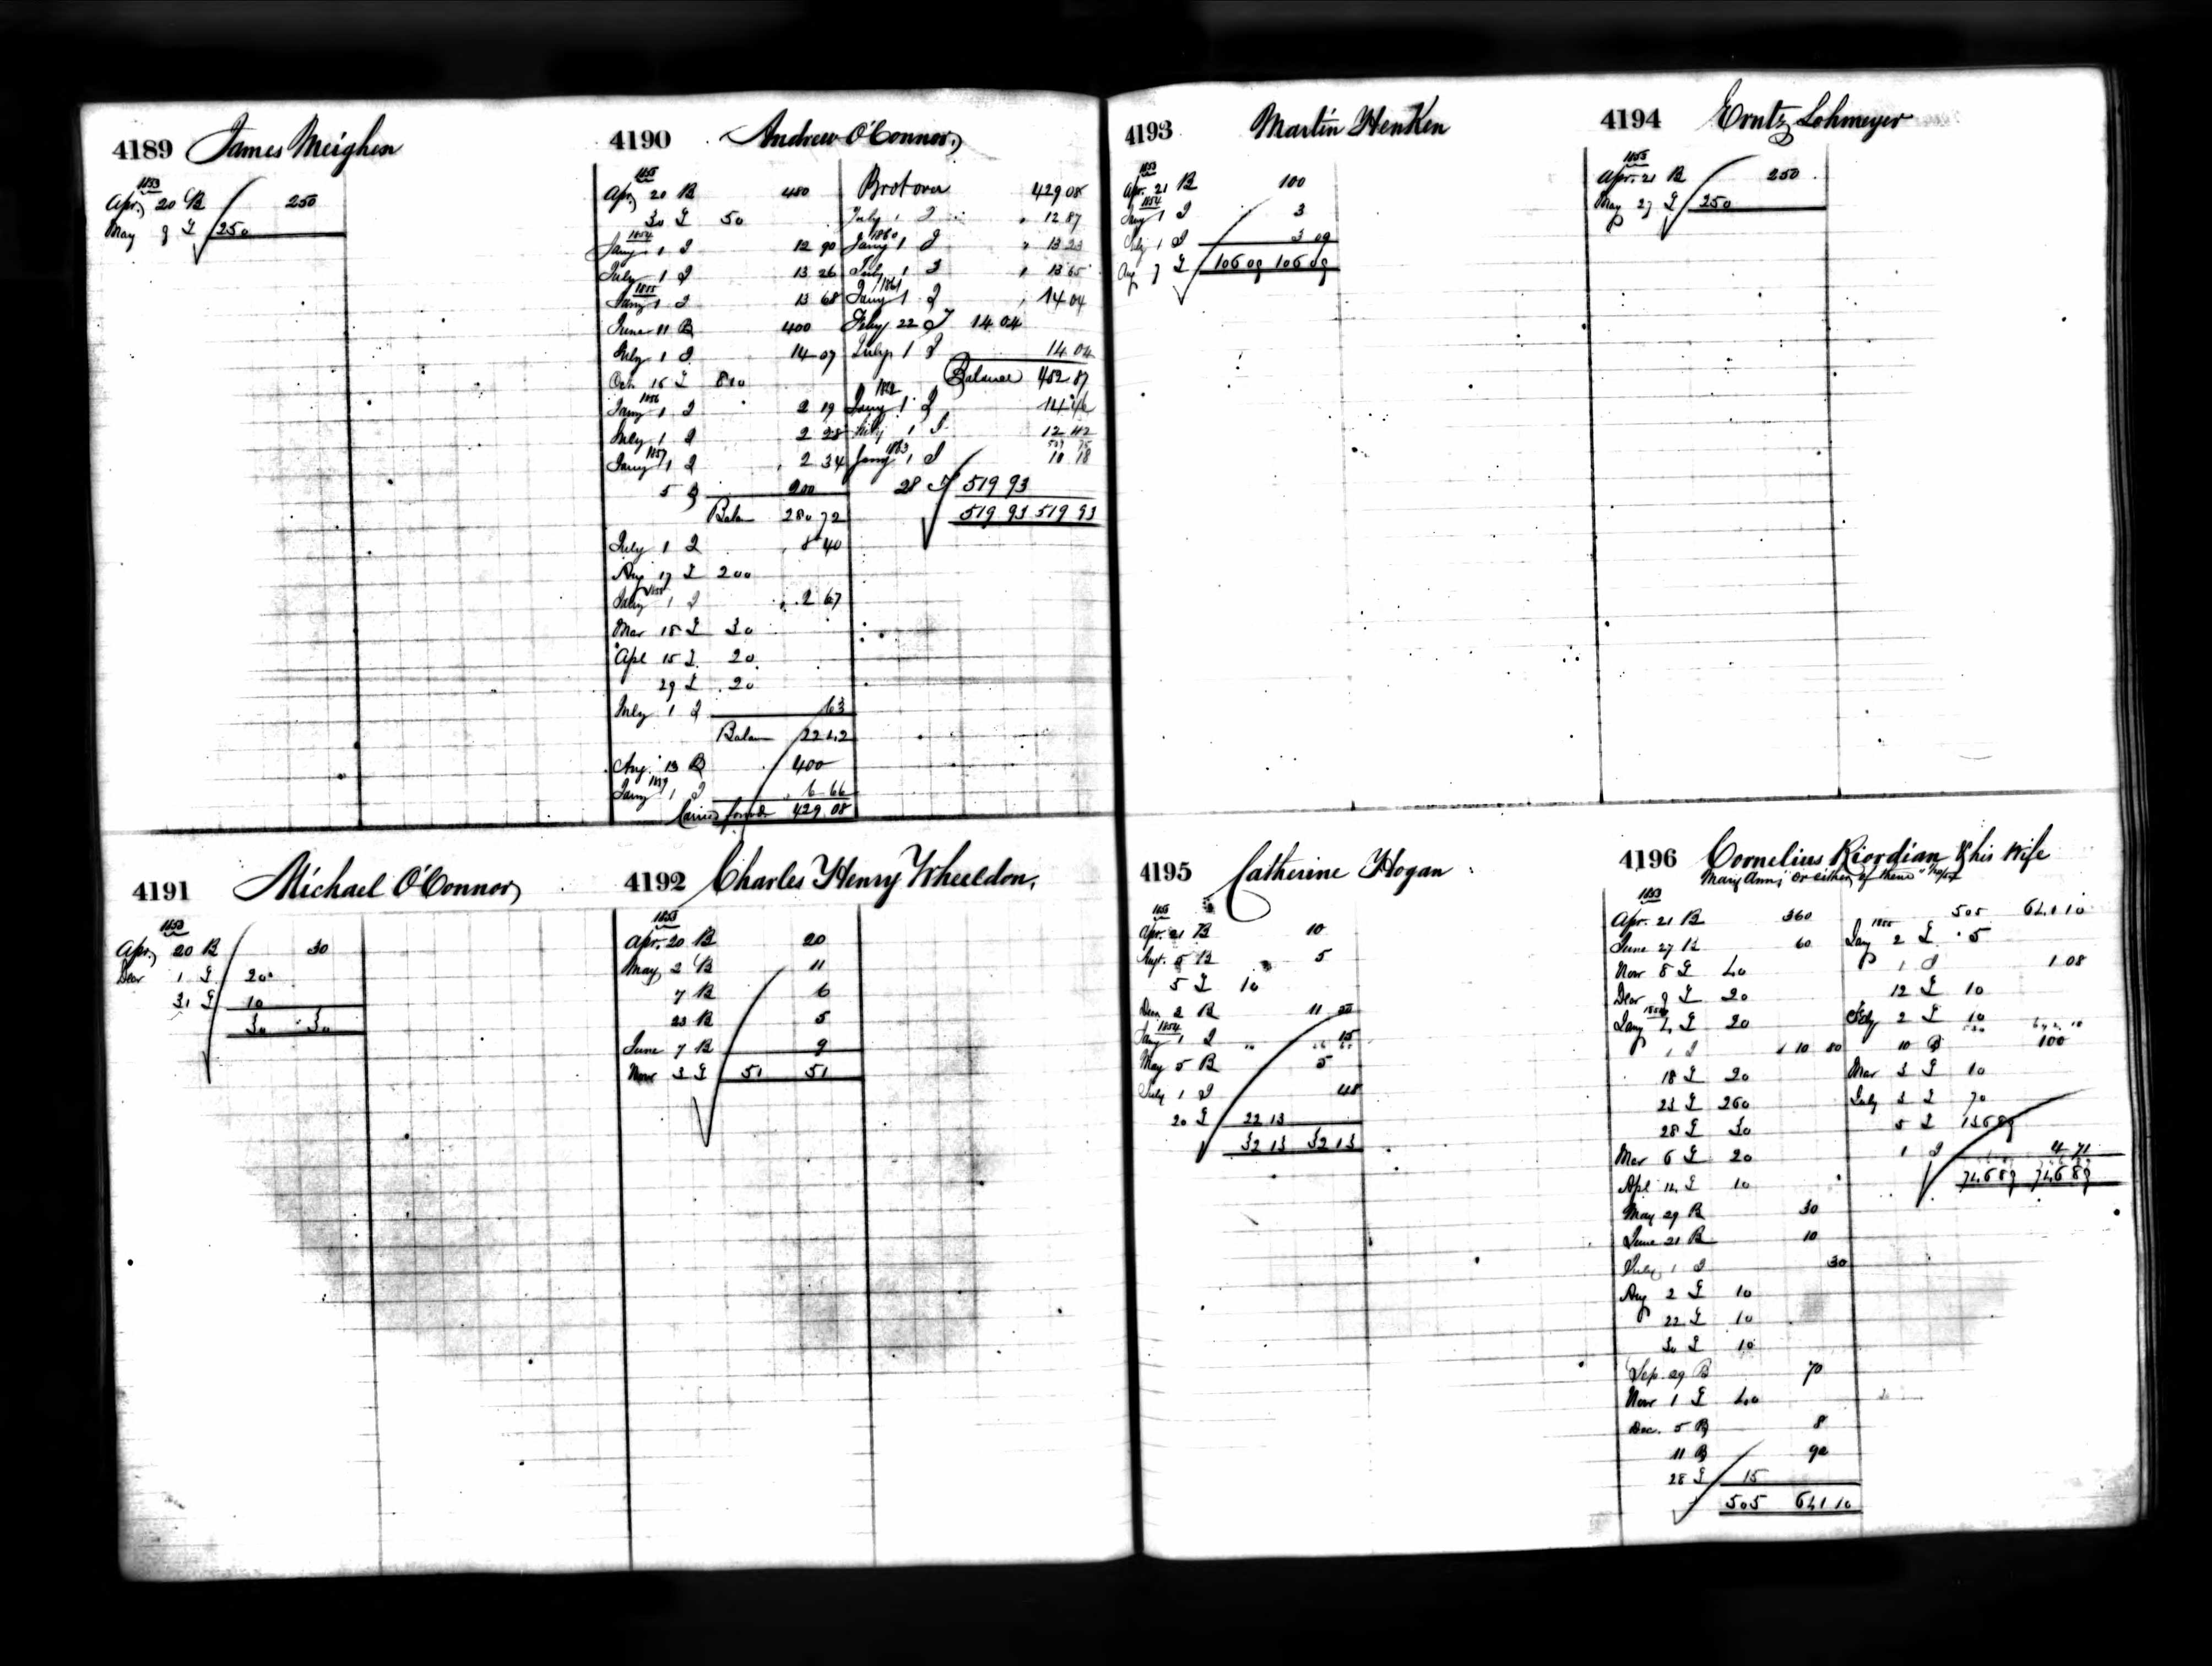 4189 James Meighen
1853
Apr. 20 B 250
May 9 D 250
4190 Andrew O'Connor
1853
Apr. 20 B 480
30 D 50
1854
Jany 1 I 12 90
July 1 I 13 26
1855
Jany 1 I 13 68
June 11 B 400
July 1 I 14 07
Oct. 16 D 810
1856
Jany 1 I 2 19
July 1 I 2 28
1857
Jany 1 I 2 34
5 B 200
Balan 280 72
July 1 I 8 40
Aug 17 D 200
Jany 1 I 2 67
Mar 18 D 30
Apl 15 D 20
29 D 20
July 1 I 63
Balan 22 42
Aug. 13 B 400
1859
Jany 1 I 6 66
Carried forwd 429 08
Brot over 429 08
July 1 I 12 87
1860
Jany 1 I 13 23
July 1 I 13 65
1861
Jany 1 I 14 04
Feby 22 D 14 04
July 1 I 14 04
Balance 482 87
1862
Jany 1 I 14 46
July 1 I 12 42
509 75
1863
Jany 1 I 10 18
28 D 519 93
519 93 519 93
4191 Michael O'Connor
1853
Apr. 20 B 30
Decr 1 D 20
31 D 10
30 30
4192 Charles Henry Wheeldon.
1853
Apr. 20 B 20
May 2 B 11
7 B 6
23 B 5
June 7 B 9
Novr 3 D 51 51
4193 Martin Henken
1853
Apr. 21 B 100
1854
Jany 1 I 3
July 1 I 3 09
Aug 7 D 106 09 106 09
4194 Erntz Lohmeyer
1853
Apr. 21 B 250
May 27 D 250
4195 Catherine Hogan
1853
Apr. 21 B 10
Augt. 5 B 5
5 D 10
2 B 11 50
1854
Jany 1 I 15
May 5 B 5
July 1 I 48
20 D 22 13
32 13 32 13
4196 Cornelius Riordian & his wife
Mary Ann, "or either of them"
1853
Apr. 21 B 360
June 27 B 60
Novr 8 D 40
Decr 9 D 20
1854
Jany 4 D 20
1 I 10 80
18 D 20
23 D 260
28 D 30
Mar 6 D 20
Apl 14 D 10
May 29 B 30
June 21 B 10
July 1 I 30
Aug 2 D 10
22 D 10
30 D 10
Sep. 29 B 70
Novr 1 D 40
Dec. 5 B 8
11 B 92
28 D 15
505 641 10
505 641 10
1855
Jany 2 D 5
1 I 1 08
12 D 10
Feby 2 D 10
10 B 100
Mar 3 D 10
July 3 D 70
5 D 136 89
1 I 4 71
746 89 746 89